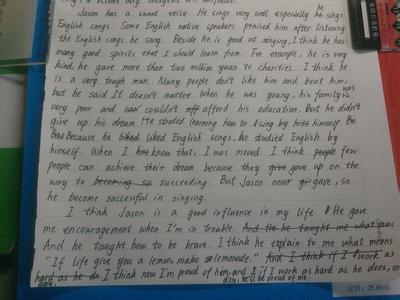 he
Jason has a sweet voice. He sings very well especially he sings
English songs. Some English native speakers praised him after listening
the English songs he sang. Beside he is good at singing, I think he has
many good spirits that I should learn from. For example, he is very
kind, he gave more than two million yuan to charities. I think he
is a very tough man. Many people don't like him and beat him.
but he said It doesn't matter. When he was young, his family was
very poor and can couldn't aff afford his education. But he didn't
give up his dream. He strated learning how to sing by hiss himself. Be
Bea Because he liked liked English songs, he studied English by
himself. When I kne knew that, I was moved. I think people few
people can achieve their dream because they give gave up on the
way to becoming su succeeding. But Jason never gi gave, so
he become successful in singing.
I think Jason is a good influence in my life. He gave
me encouragement when I'm in trouble. And the he taught me what was
And he taught how to be brave. I think he explain to me what means
"If life give you a lemon, make a lemonade." And I think if I work as
hard as he do I think now I'm proud of him, and if I work as hard as he does, on
day, he'll be proud of me.
定价: 25.80元